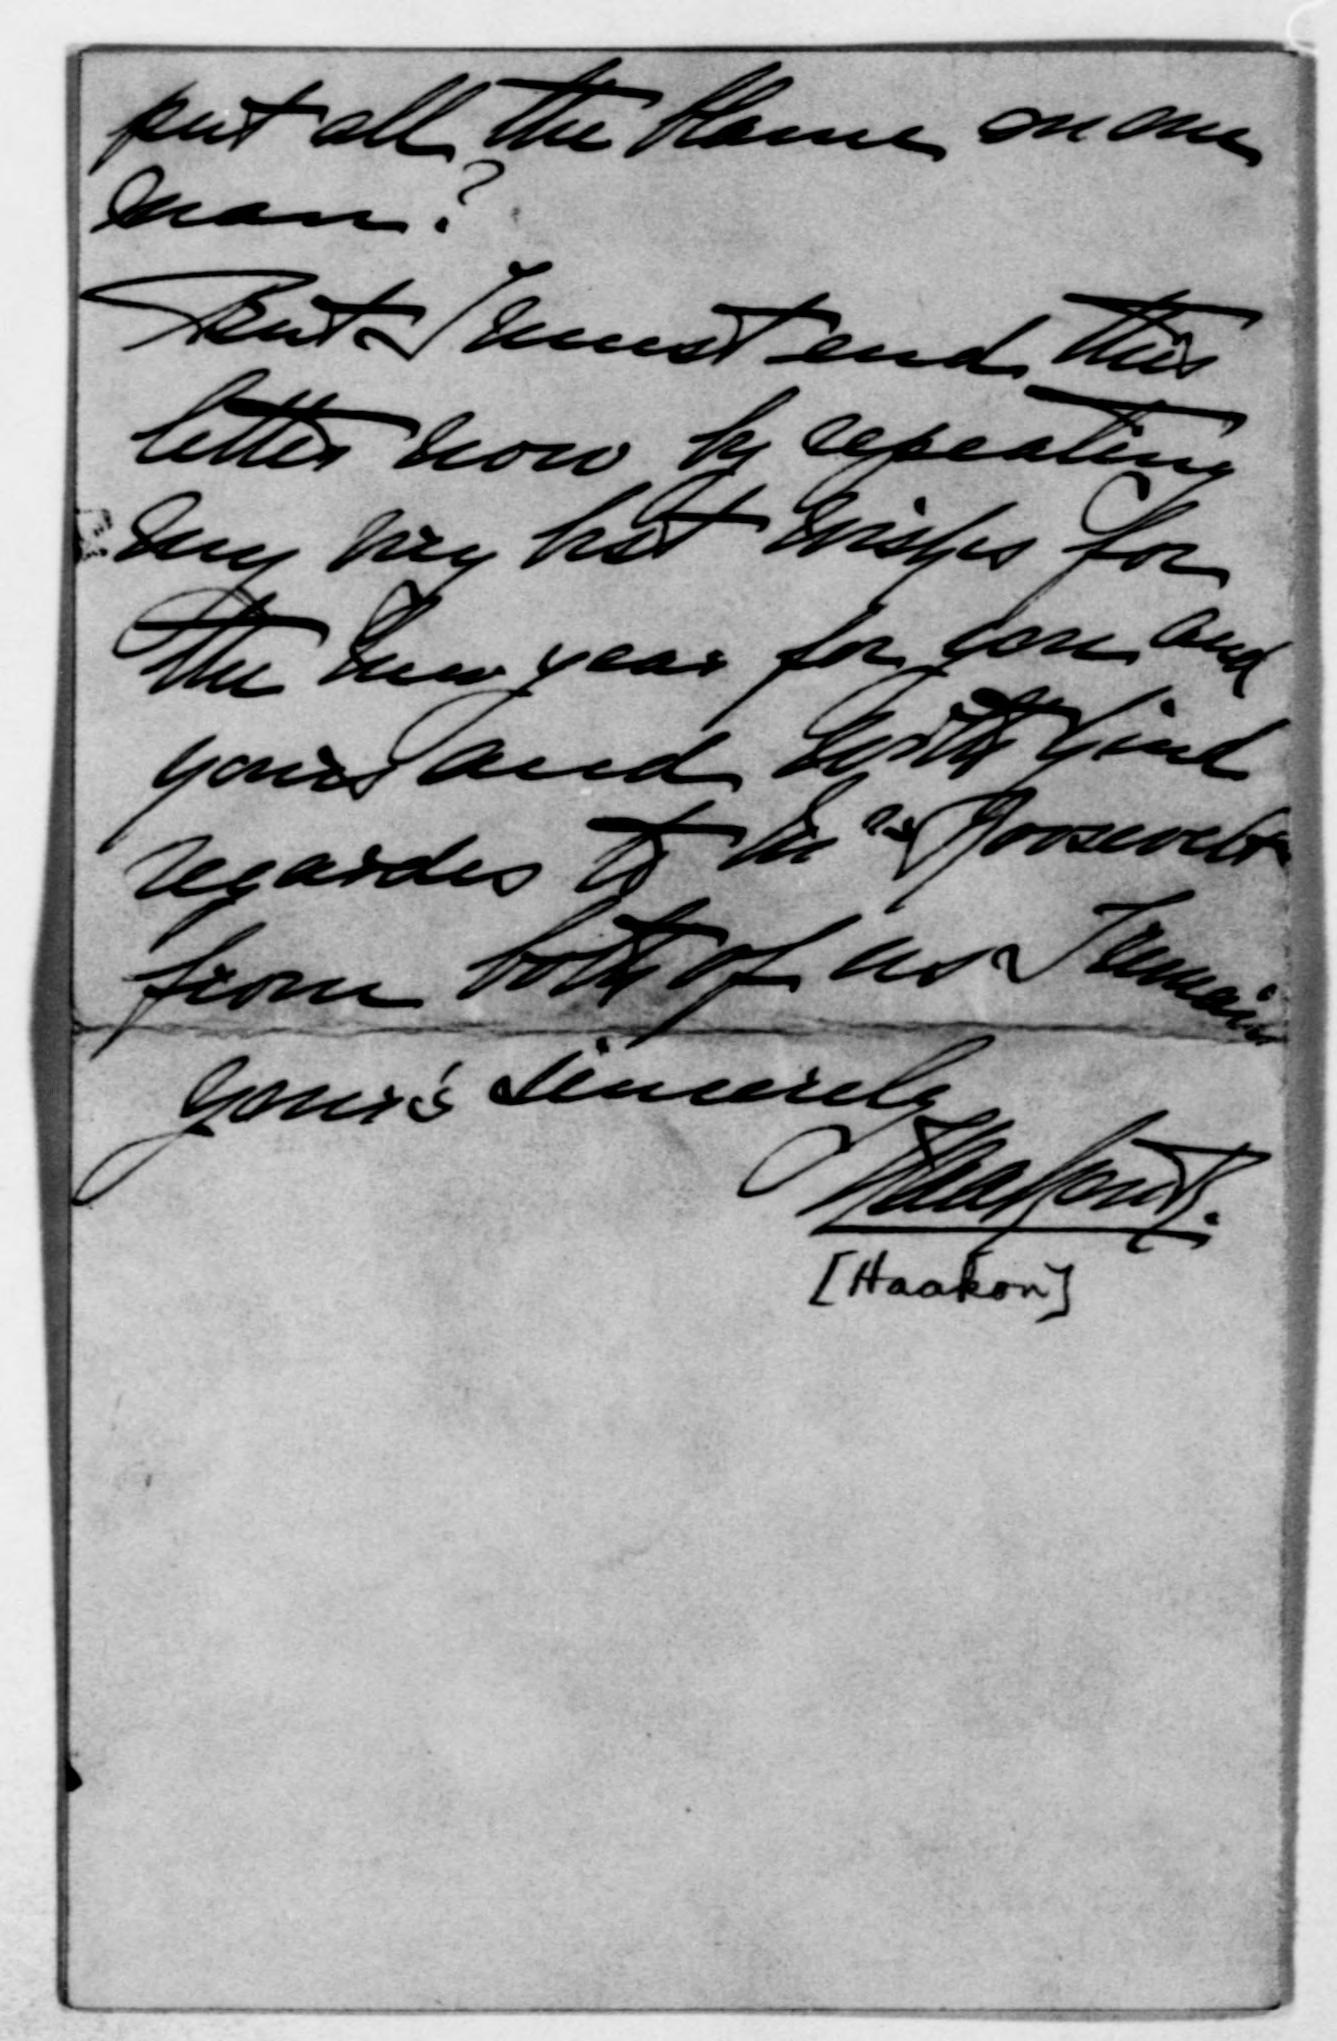 put all the blame on one
man?
But I must end this
letter now by repeating
my very best wishes for
the new year for you and
yours and with kind
regardes to Mrs Roosevelt
from both of us I remain
your's sincerely
Haakon R.
[Haakon]